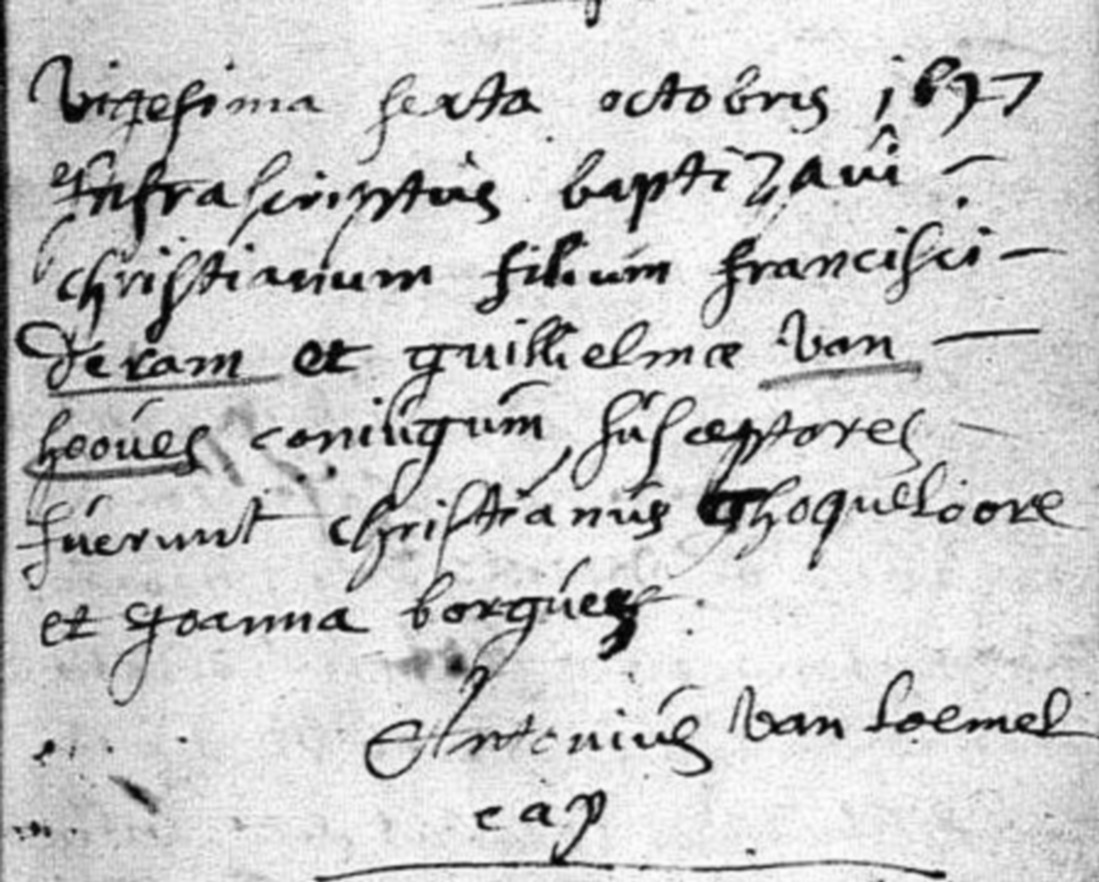 Vigesima sexta octobris 1697
Infrascriptus baptizavi —
christianum filium francisci —
deram et guillielmæ van —
hooues coniugum, susceptores
fuerunt christianus
et Joanna borgues.
Antonius van loemel
cap